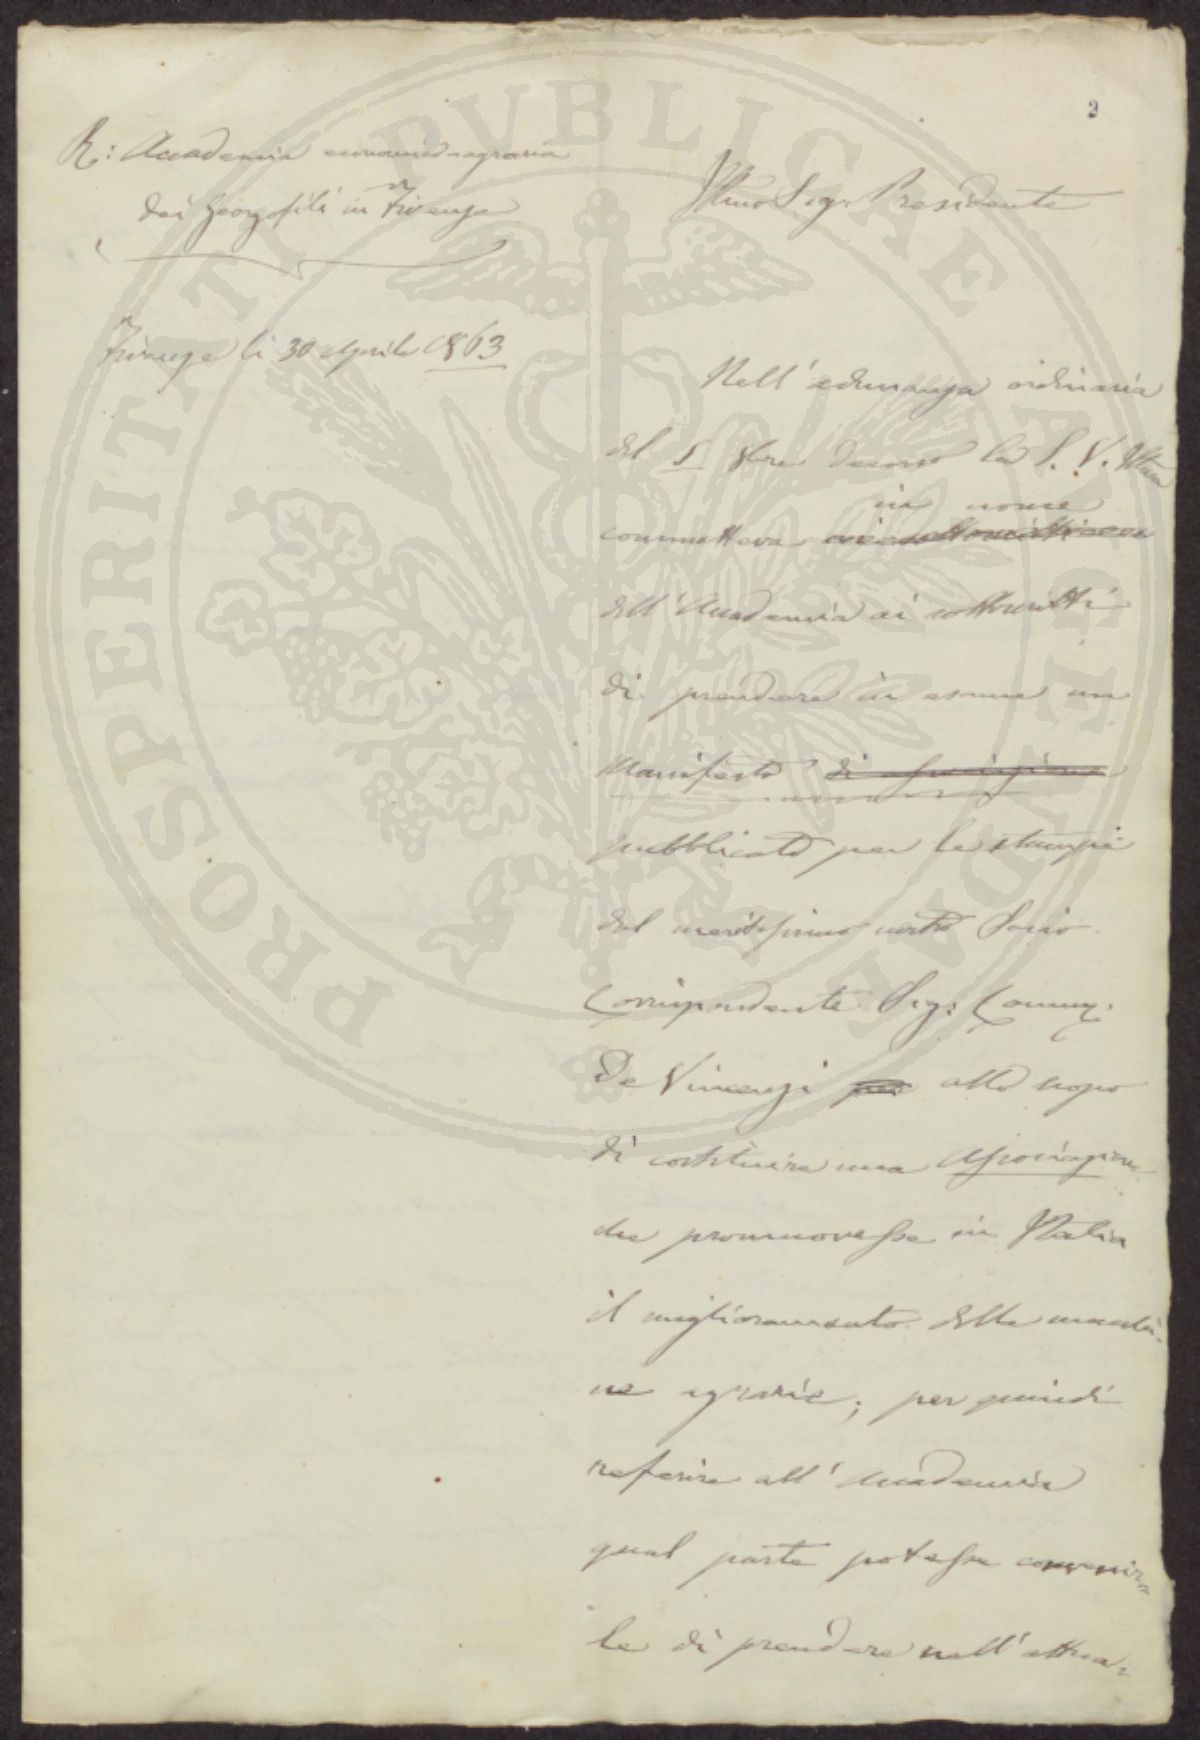 2
R: Accademia economico-agraria
dei Georgofili in Firenze
Illmo Sig. Presidente
Firenze li 30 Aprile 1863
Nell'adunanza ordinaria
del decorso la S. V. Illma
in nome
commetteva
dell'Accademia ai sottoscritti
di prendere in esame un
Manifesto di associazione
pubblicato per le stampe
dal meritissimo nostro Socio
Corrispondente Sig: Comm.
De Vincenzi per allo scopo
di costituire una Associazione
che promuovesse in Italia
il miglioramento delle macchi-
ne agrarie; per quindi
referire all'Accademia
qual parte potesse convenir-
le di prendere nell'attua-
PROSPERITATI PVBLICAE AVGENDAE